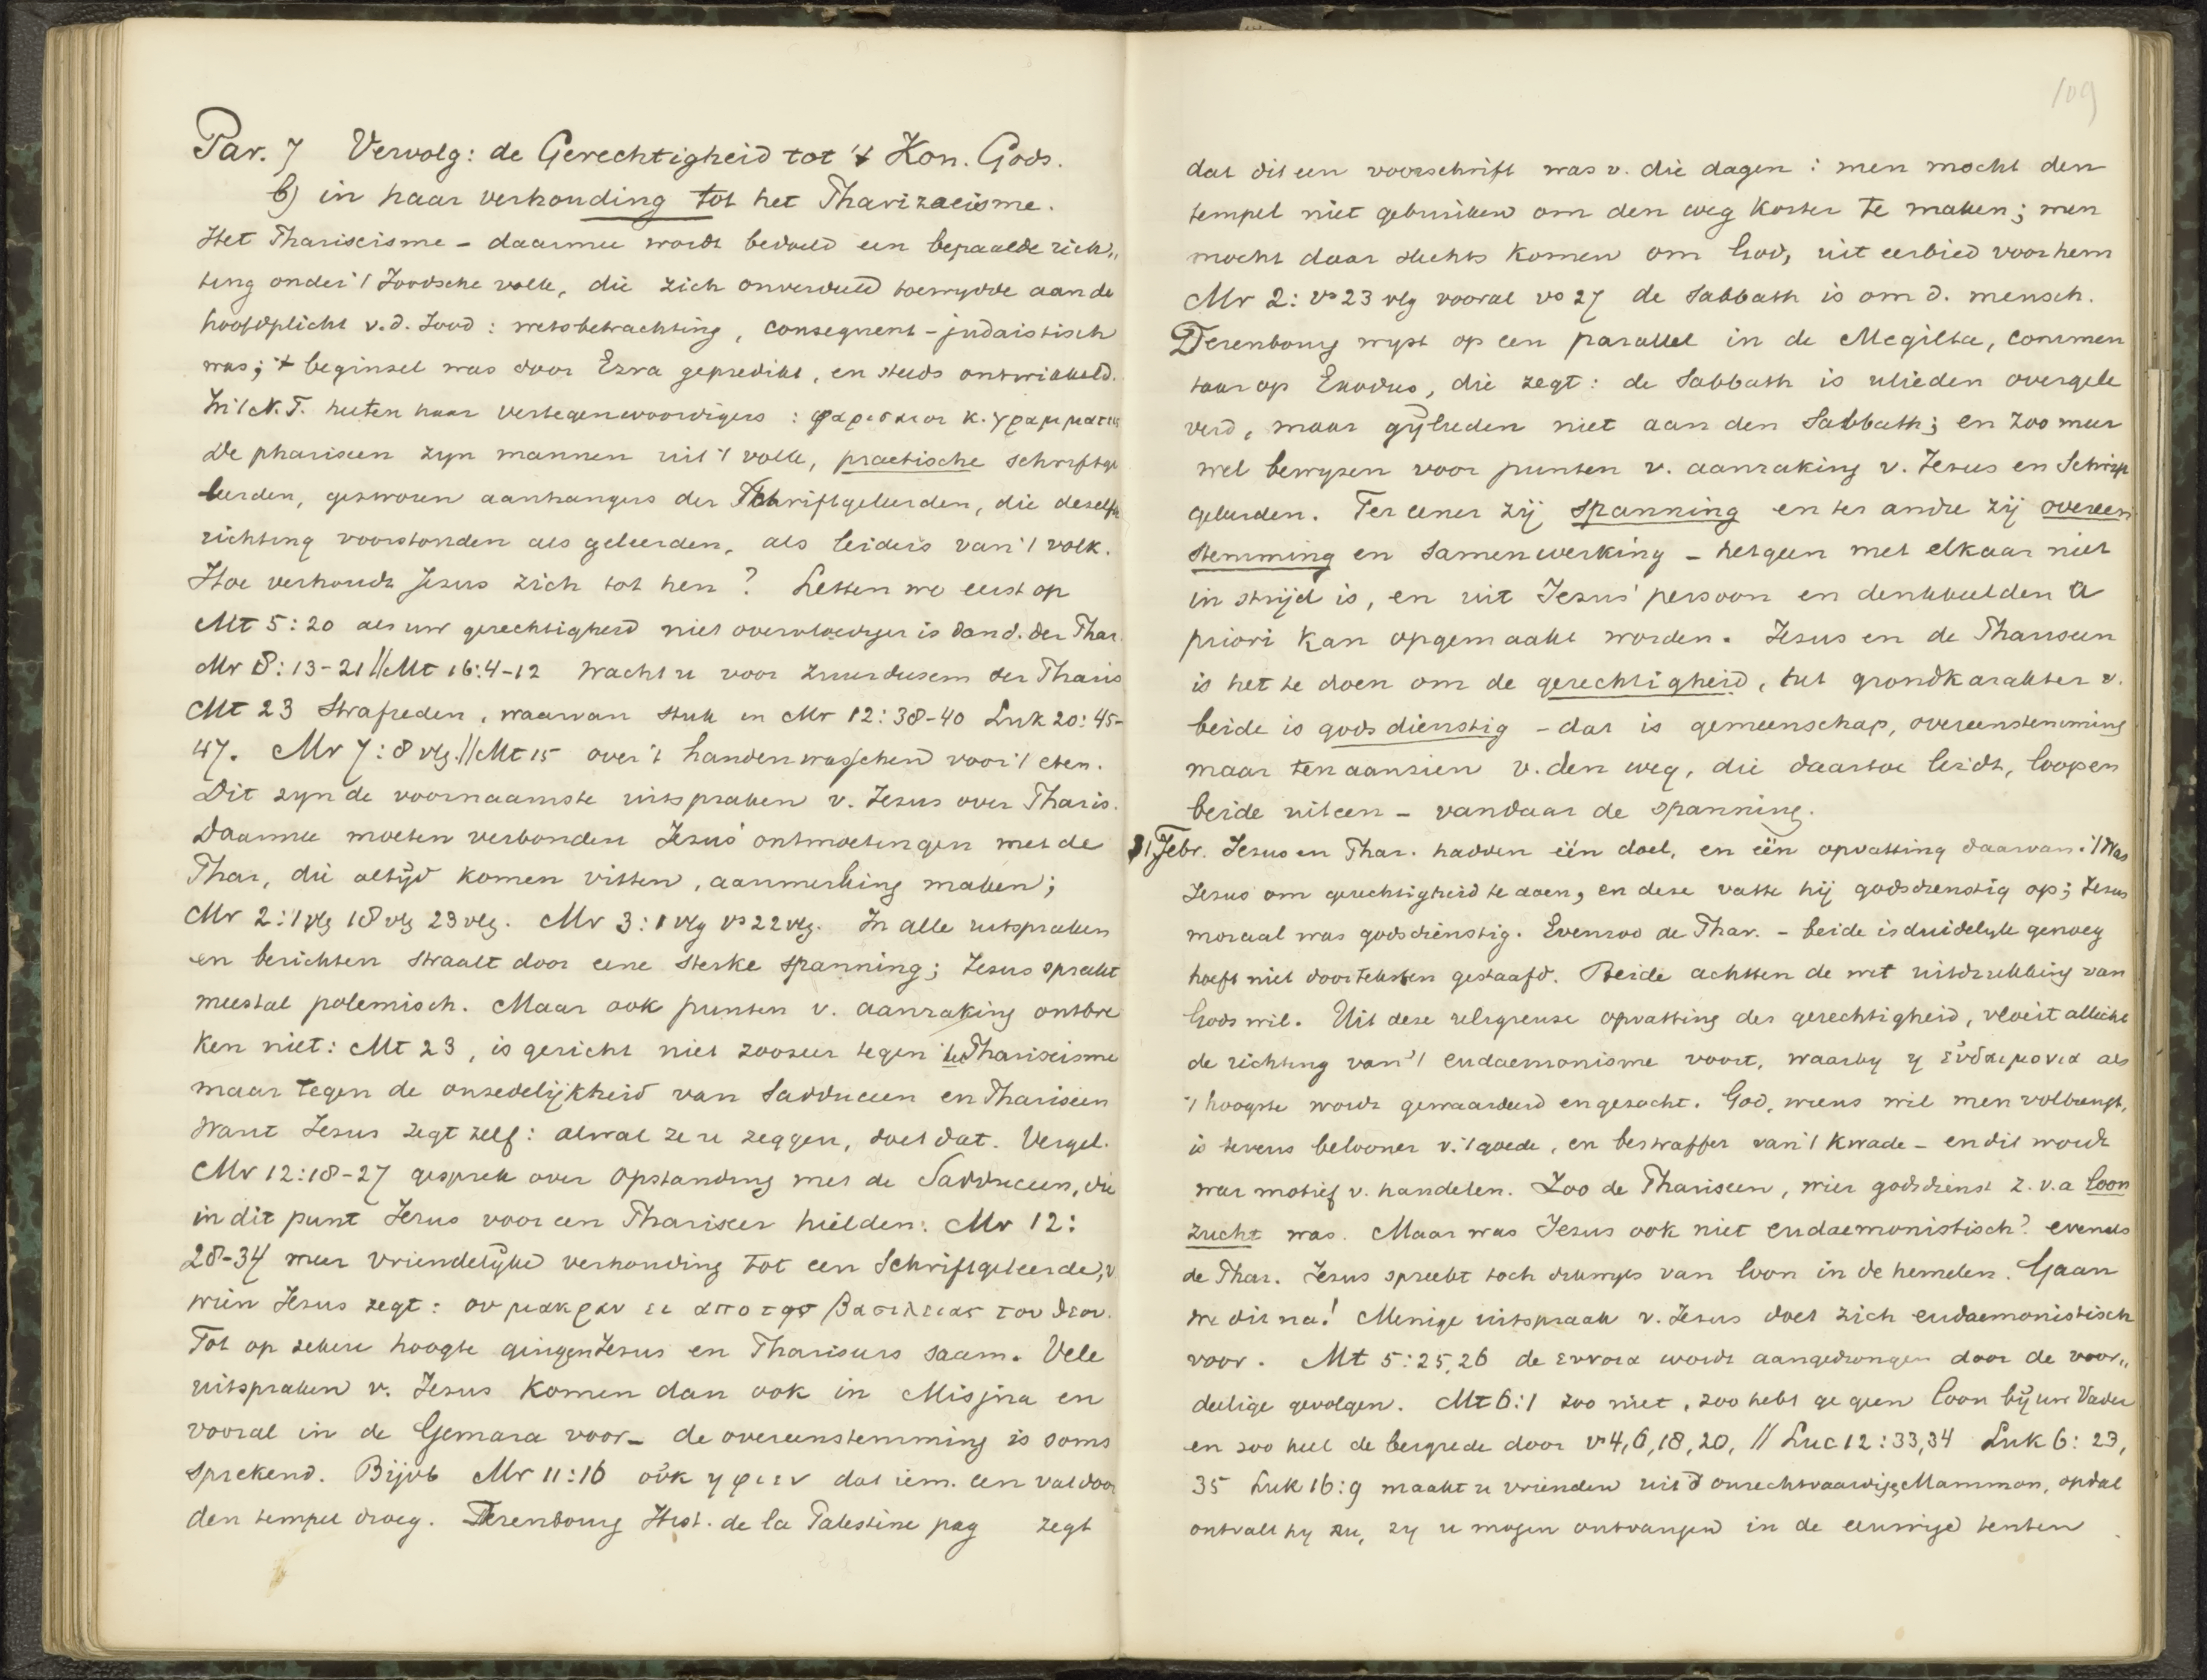 Par. 7 Vervolg: de Gerechtigheid tot 't Kon. Gods.
b) in haar verhouding tot het Pharizaeisme.
Het Phariseisme – daarmee wordt bedoeld een bepaalde rich„
ting onder 't Joodsche volk, die zich onverdeeld toewydde aan de
hoofdplicht v.d. Jood: wetsbetrachting, consequent-judaistisch
was; 't beginsel was door Ezra gepredikt, en steeds ontwikkeld.
In 't N.T. heeten haar vertegenwoordigers: φαρισαιοι κ. γραμματεις
De phariseen zyn mannen uit 't volk, practische schriftge
leerden, gezworen aanhangers der Schriftgeleerden, die dezelfde
richting voorstonden als geleerden, als leiders van 't volk.
Hoe verhoudt Jezus zich tot hen? Letten we eerst op
Mt 5:20 als uw gerechtigheid niet overvloediger is dan d. der Phar.
Mr 8:13-21 // Mt 16:4-12 Wacht u voor zuurdesem der Pharis
Mt 23 Strafreden, waarvan stuk in Mr 12:38-40 Luk 20:45-
47. Mr 7:8 vlg. // Mt 15 over 't handenwasschen voor 't eten.
Dit zyn de voornaamste uitspraken v. Jezus over Pharis.
Daarmee moeten verbonden Jezus' ontmoetingen met de
Phar, die altijd komen vitten, aanmerking maken;
Mr 2:1 vlg 18 vlg 23 vlg. Mr 3:1 vlg vs 22 vlg. In alle uitspraken
en berichten straalt door eene sterke spanning; Jezus spreekt
meestal polemisch. Maar ook punten v. aanraking ontbre
ken niet: Mt 23, is gericht niet zoozeer tegen 't Phariseisme
maar tegen de onzedelijkheid van Sadduceen en Phariseen
Want Jezus zegt zelf: alwat ze u zeggen, doet dat. Vergel.
Mr 12:18-27 gesprek over Opstanding met de Sadduceen, die
in dit punt Jezus voor een Phariseer hielden. Mr 12:
28-34 meer vriendelijke verhouding tot een Schriftgeleerde, v
wien Jezus zegt: ου μακραν ει απο της βασιλειας του θεου.
Tot op zekere hoogte gingen Jezus en Phariseers saam. Vele
uitspraken v. Jezus komen dan ook in Misjna en
vooral in de Gemara voor – de overeenstemming is soms
sprekend. Bijvb Mr 11:16 οὐκ ηφιεν dat iem. een vat door
den tempel droeg. Derenbourg Hist. de la Palestine pag zegt
109
dat dit een voorschrift was v. die dagen: men mocht den
tempel niet gebruiken om den weg korter te maken; men
mocht daar slechts komen om God, uit eerbied voor hem
Mr 2: vs 23 vlg vooral vs 27 de Sabbath is om d. mensch.
Derenbourg wyst op een parallel in de Megilta, commen
taar op Exodus, die zegt: de Sabbath is ulieden overgele
verd, maar gijlieden niet aan den Sabbath; en zoo meer
wel bewyzen voor punten v. aanraking v. Jezus en Schrift
geleerden. Ter eener zij spanning en ter andre zij overeen
stemming en samenwerking – hetgeen met elkaar niet
in strijd is, en uit Jezus' persoon en denkbeelden a
priori kan opgemaakt worden. Jezus en de Phariseen
is het te doen om de gerechtigheid, het grondkarakter v.
beide is godsdienstig – dat is gemeenschap, overeenstemming
maar ten aanzien v. den weg, die daartoe leidt, loopen
beide uiteen – vandaar de spanning.
Febr. Jezus en Phar. hadden één doel, en één opvatting daarvan. 't Was
Jezus om gerechtigheid te doen, en deze vatte hij godsdienstig op; Jezus
moraal was godsdienstig. Evenzoo de Phar. – beide is duidelyk genoeg
hoeft niet door teksten gestaafd. Beide achtten de wet uitdrukking van
Gods wil. Uit deze religieuse opvatting der gerechtigheid, vloeit allicht
de richting van 't eudaemonisme voort, waarby η εὐδαιμονια als
't hoogste wordt gewaardeerd en gezocht. God, wiens wil men volbrengt,
is tevens belooner v. 't goede, en bestraffer van 't kwade – en dit wordt
waar motief v. handelen. Zoo de Phariseen, wier godsdienst z.v.a loon
zucht was. Maar was Jezus ook niet eudaemonistisch? evenals
de Phar. Jezus spreekt toch dikwyls van loon in de hemelen. Gaan
we dit na! Menige uitspraak v. Jezus doet zich eudaemonistisch
voor. Mt 5:25,26 de ευνοια wordt aangedrongen door de voor„
deelige gevolgen. Mt 6:1 zoo niet, zoo hebt ge geen loon bij uw Vader
en zoo heel de bergrede door vs 4, 6, 18, 20, // Luc 12:33,34 Luk 6:23,
35 Luk 16:9 maakt u vrienden uit d onrechtvaardige Mammon, opdat
ontvalt hy u, zy u mogen ontvangen in de eeuwige tenten.